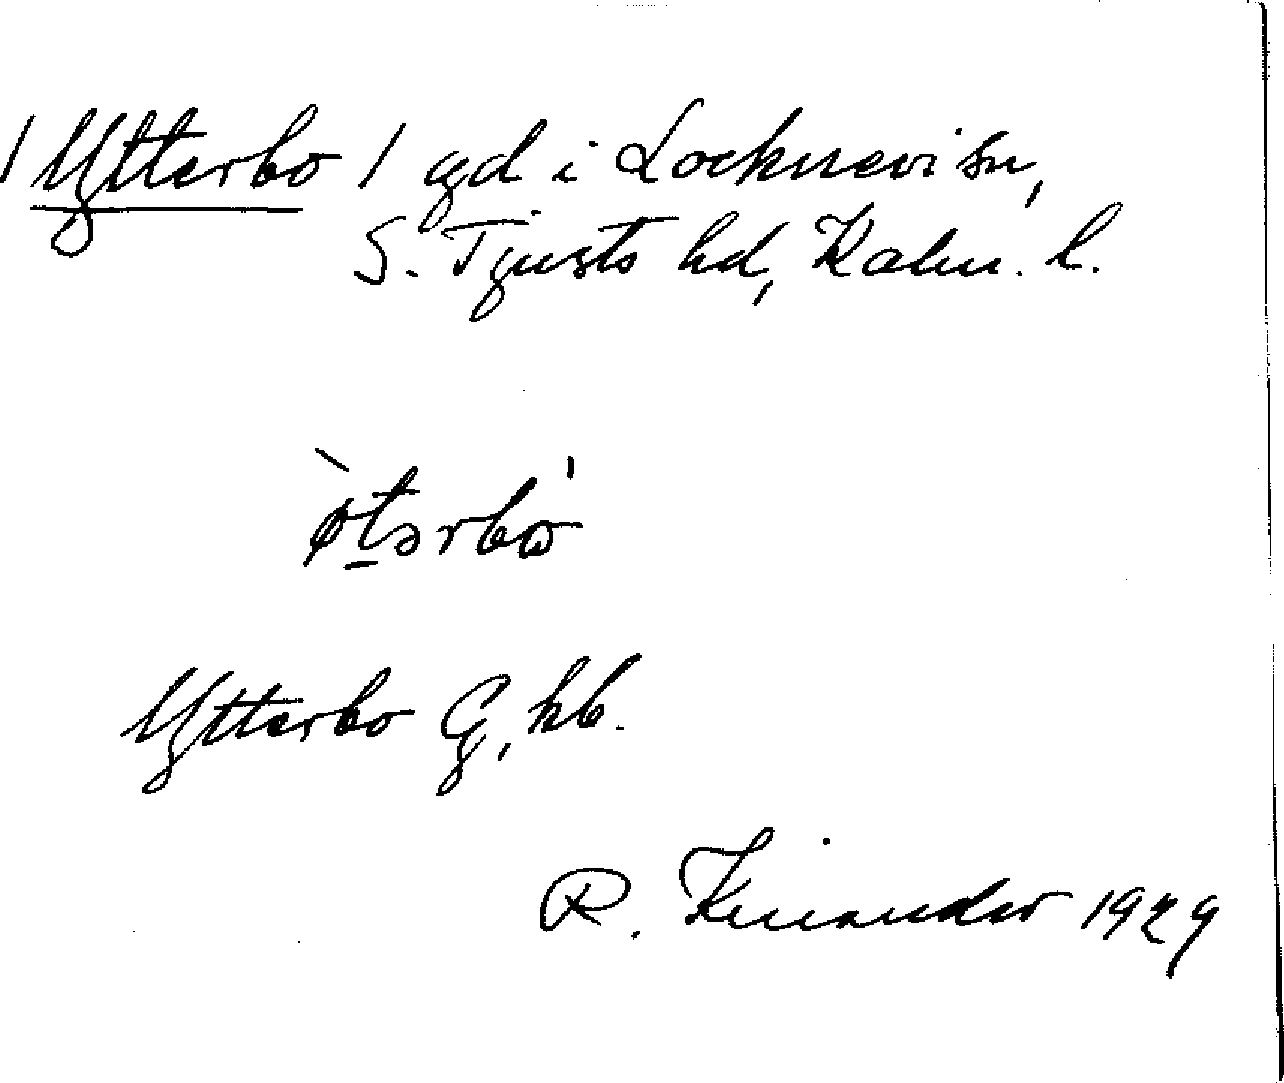 / Ytterbo / gd i Locknevi sn,
S. Tjusts hd, Kalm. l.
Ytterbo G, kb.
R. Kinander 1929